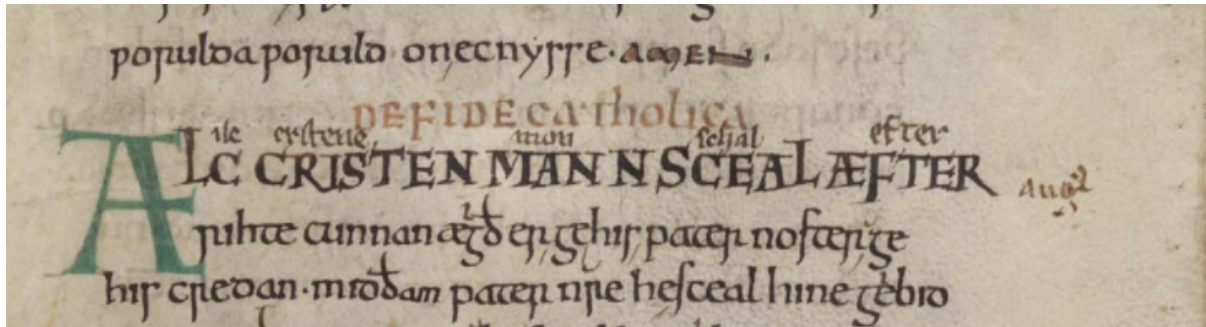 ƿorulda ƿoruld on ecnysse. AMEN.
DE FIDE CATHOLICA
ilc cristene mon schal efter
ALC CRISTEN MANN SCEAL ÆFTER
rihte cunnan ægðer ge his pater noster ge
his credan. mid ðam pater nre he sceal hine gebid